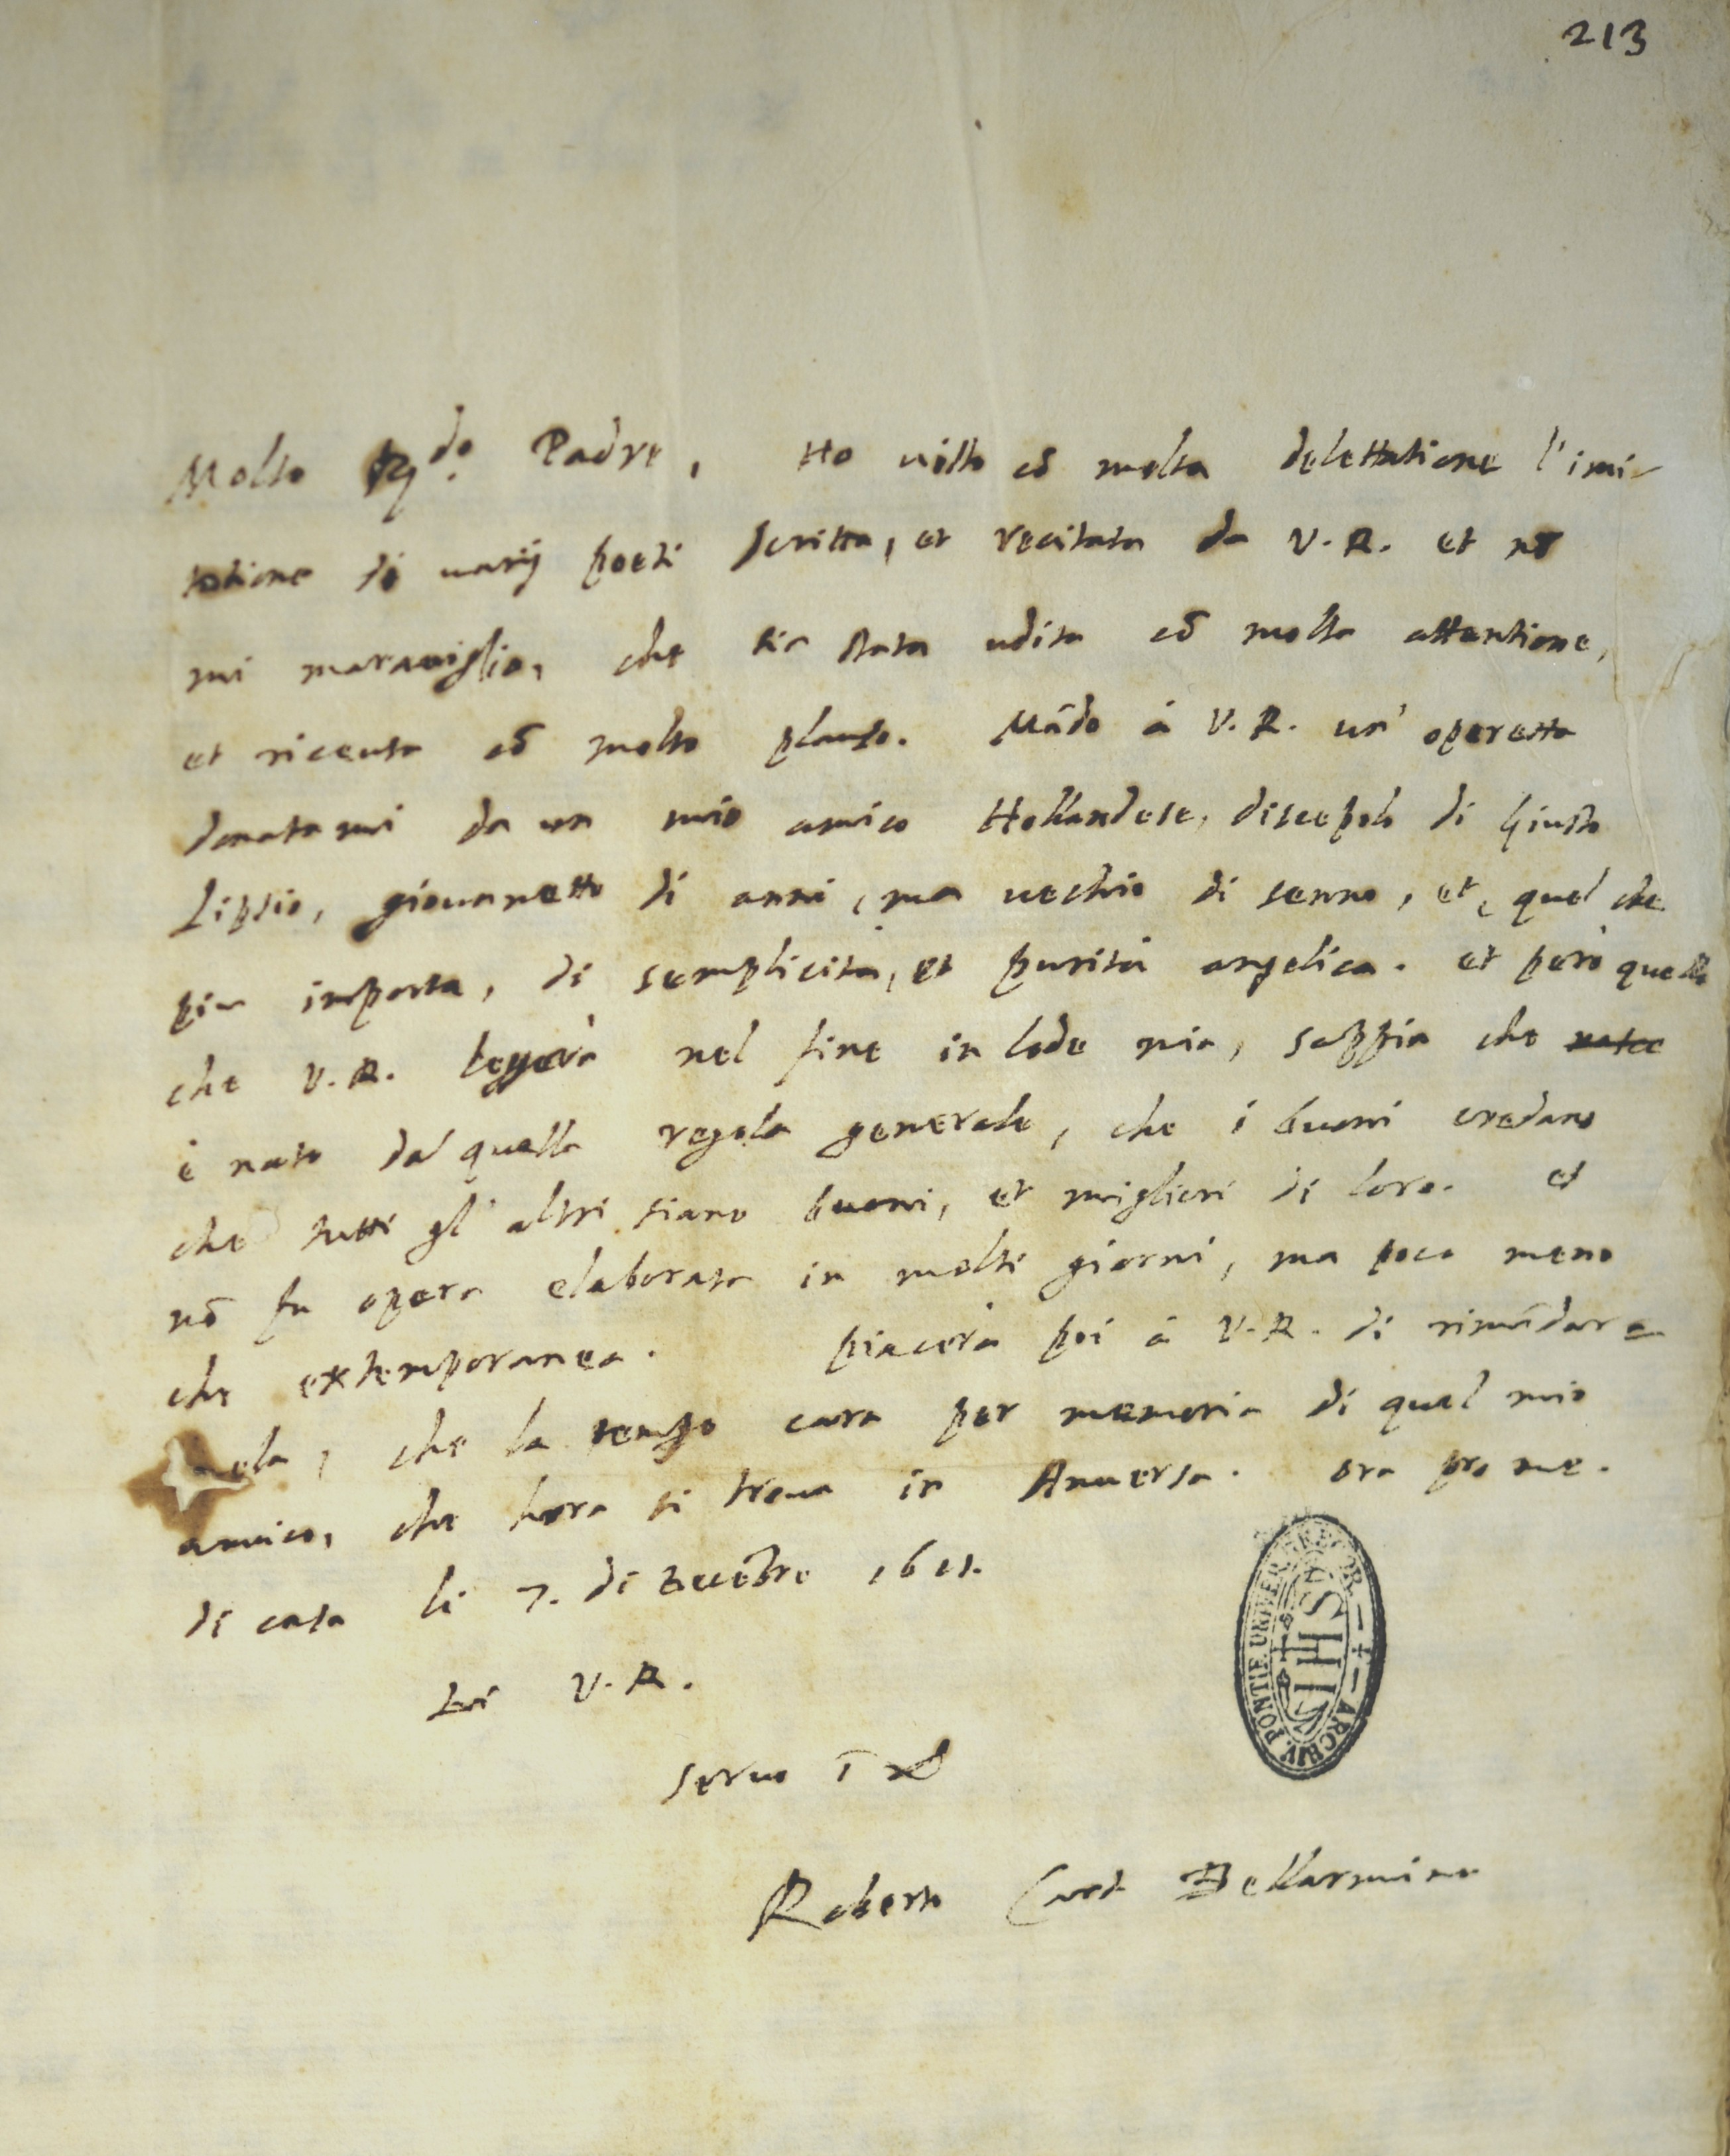 213
Molto R.do Padre, Ho visto cō molta delettatione l'imi-
tatione di varij poeti scritta, et recitata da V.R. et nō
mi maraviglio, che sia stata udita cō molta attentione,
et riceuta cō molto plauso. Mādo à V.R. un' operetta
donatami da un mio amico Hollandese, discepolo di Giusto
Lipsio, giovanetto di anni, ma vechio di senno, et, quel che
piu importa, di semplicità, et purità angelica. et però quello
che V.R. leggerà nel fine in lode mia, sappia che
è nato da quella regola generale, che i buoni credano
che tutti gl' altri siano buoni, et migliori di loro. et
nō fu opera elaborata in molti giorni, ma poco meno
che extemporanea. piacerà poi à V.R. di rimādar
mela, che la tengo cara per memoria di quel mio
amico, che hora si trova in Anversa. ora pro me.
di casa li 7. di Decēbre
Di V.R.
servo ī
Roberto Card Bellarmino
ARCHIV. PONTIF. UNIVER. GREGOR.
IHS